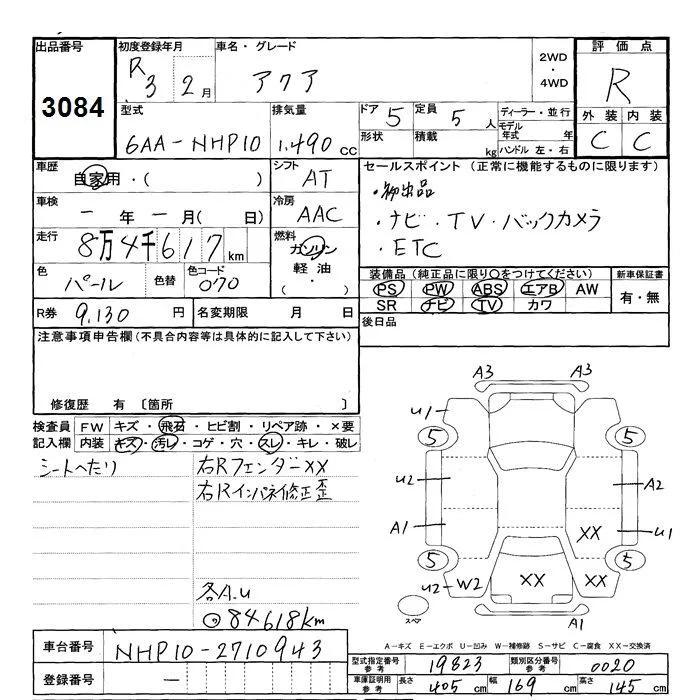 出品番号 初度登録年月 車名・グレード 2WD・4WD 評価点
3084 R3 2月 アクア R
型式 排気量 ドア 5 定員 5人 ディーラー・並行 外装 内装
6AA-NHP10 1.490cc 形状 積載 kg モデル年式 年 C C
ハンドル 左・右
車歴 自家用・( ) シフト AT セールスポイント (正常に機能するものに限ります)
車検 一年一月( 日) 冷房 AAC
・ナビ・TV・バックカメラ
走行 8万4千617km 燃料 ガソリン ・ETC
色 パール 色替 色コード 070 軽油 ( ・ )
装備品 (純正品に限り○をつけてください) 新車保証書
PS PW ABS エアB AW 有・無
R券 9.130円 名変期限 月 日 SR ナビ TV カワ
後日品
注意事項申告欄 (不具合内容等は具体的に記入して下さい)
修復歴 有 〔箇所 〕
検査員 FW キズ・飛石・ヒビ割・リペア跡・×要
記入欄 内装 キズ・汚レ・コゲ・穴・スレ・キレ・破レ
シートへたり 右Rフェンダーxx
右Rインパネ修正歪
各A.u
84618km
A3 A3
u1
5 5
u2 A2
A1 xx u1
5 5
u2 W2 xx xx
スペア A1
A-キズ E-エクボ U-凹み W-補修跡 S-サビ C-腐食 XX-交換済
車台番号 NHP10-2710943
登録番号 —
型式指定番号 参考 19823 類別区分番号 参考 0020
車庫証明用 参考 長さ 405cm 幅 169cm 高さ 145cm